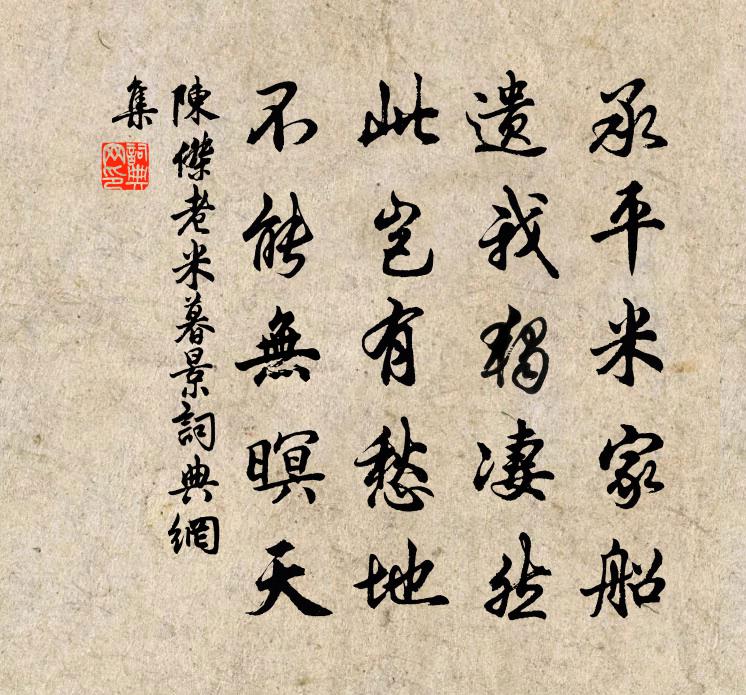 承平米家船
遺我獨凄然
此豈有愁地
不能無暝天
陳傑老米暮景詞典網
集
詞典
网印